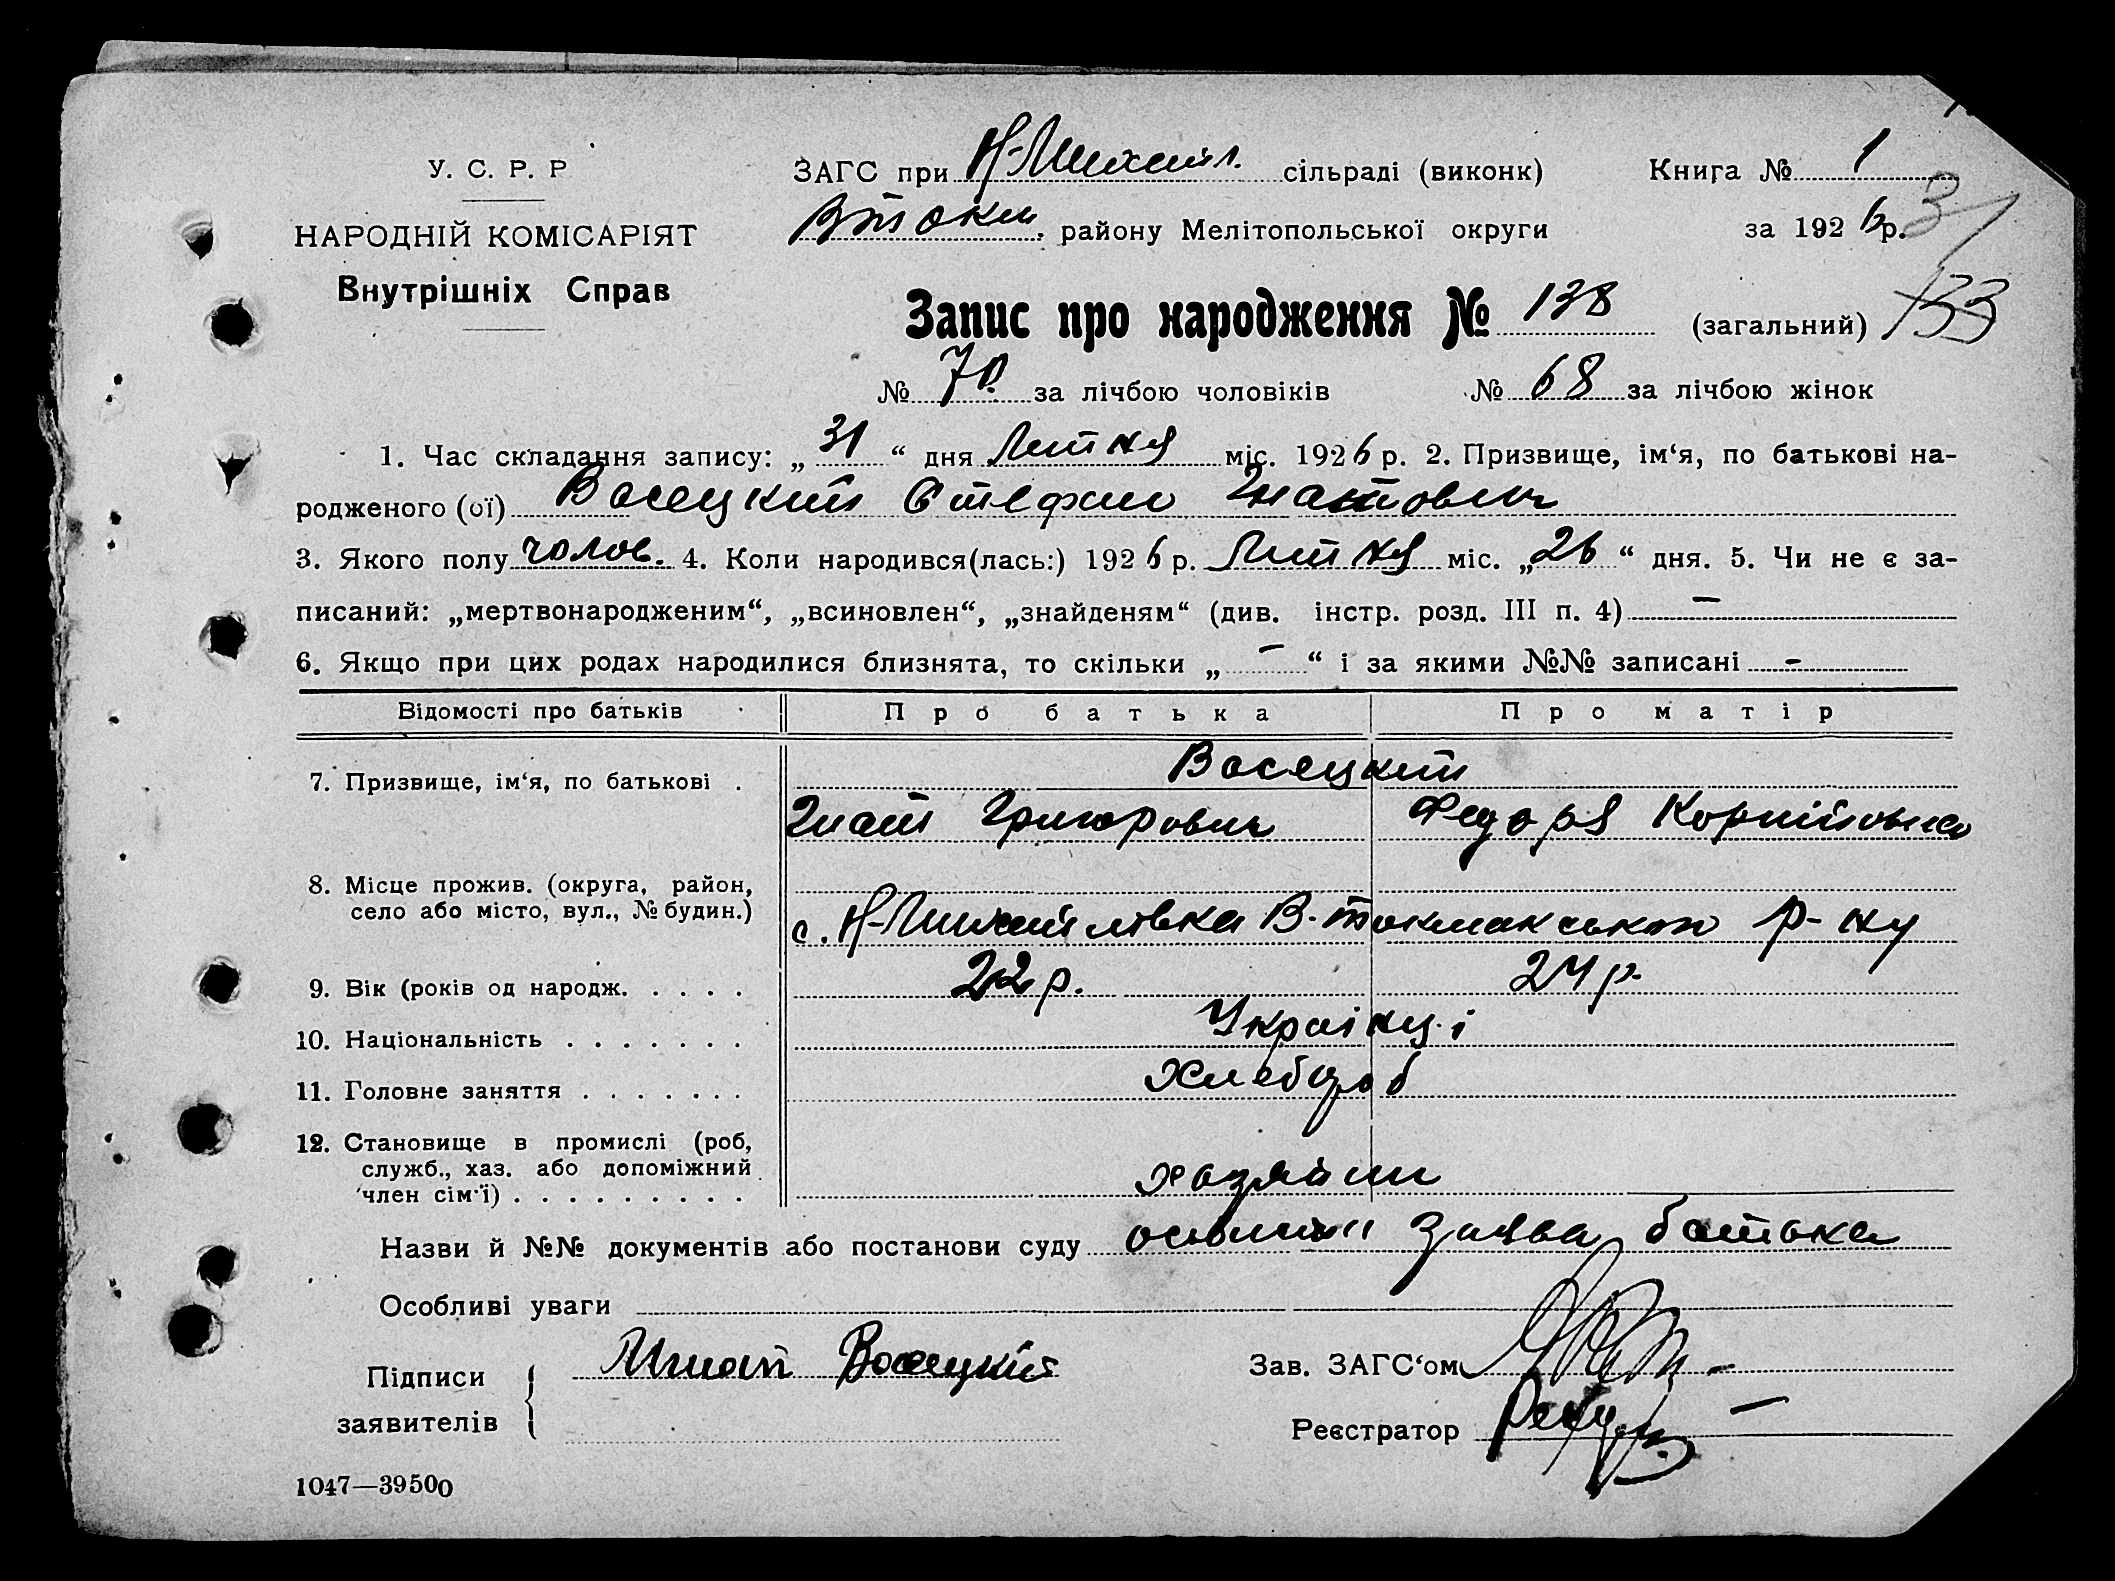 У. С. Р. Р
НАРОДНІЙ КОМІСАРІЯТ
Внутрішніх Справ
ЗАГС при Н-Михайл. сільраді (виконк)
Книга № 1
ВТокм. району Мелітопольської округи
за 1926 р.
31
Запис про народження № 138 (загальний) 133
№ 70 за лічбою чоловіків № 68 за лічбою жінок
1. Час складання запису: „31“ дня Липня міс. 1926 р. 2. Призвище, ім‘я, по батькові на-
родженого (ої) Восецкий Стефан Гнатович
3. Якого полу чолов. 4. Коли народився(лась:) 1926 р. Липня міс. „26“ дня. 5. Чи не є за-
писаний: „мертвонародженим“, „всиновлен“, „знайденям“ (див. інстр. розд. III п. 4) –
6. Якщо при цих родах народилися близнята, то скільки „–“ і за якими №№ записані –
Відомості про батьків Про батька Про матір
7. Призвище, ім‘я, по батькові . Восецкий
Гнат Григорович Федора Корнійовна
8. Місце прожив. (округа, район,
село або місто, вул., № будин.) с. Н-Михайлівка В-Токмакського р-ну
9. Вік (років од народж. . . . . 22 р. 24 р.
10. Національність . . . . . . . Українці
11. Головне заняття . . . . . . . Хлебороб
12. Становище в промислі (роб,
служб., хаз. або допоміжний
член сім‘ї) . . . . . . . . . хазяйин
Назви й №№ документів або постанови суду заява батька
Особливі уваги
Підписи
заявителів
Игнат Восецкий
Зав. ЗАГС‘ом
Реєстратор
1047—39500